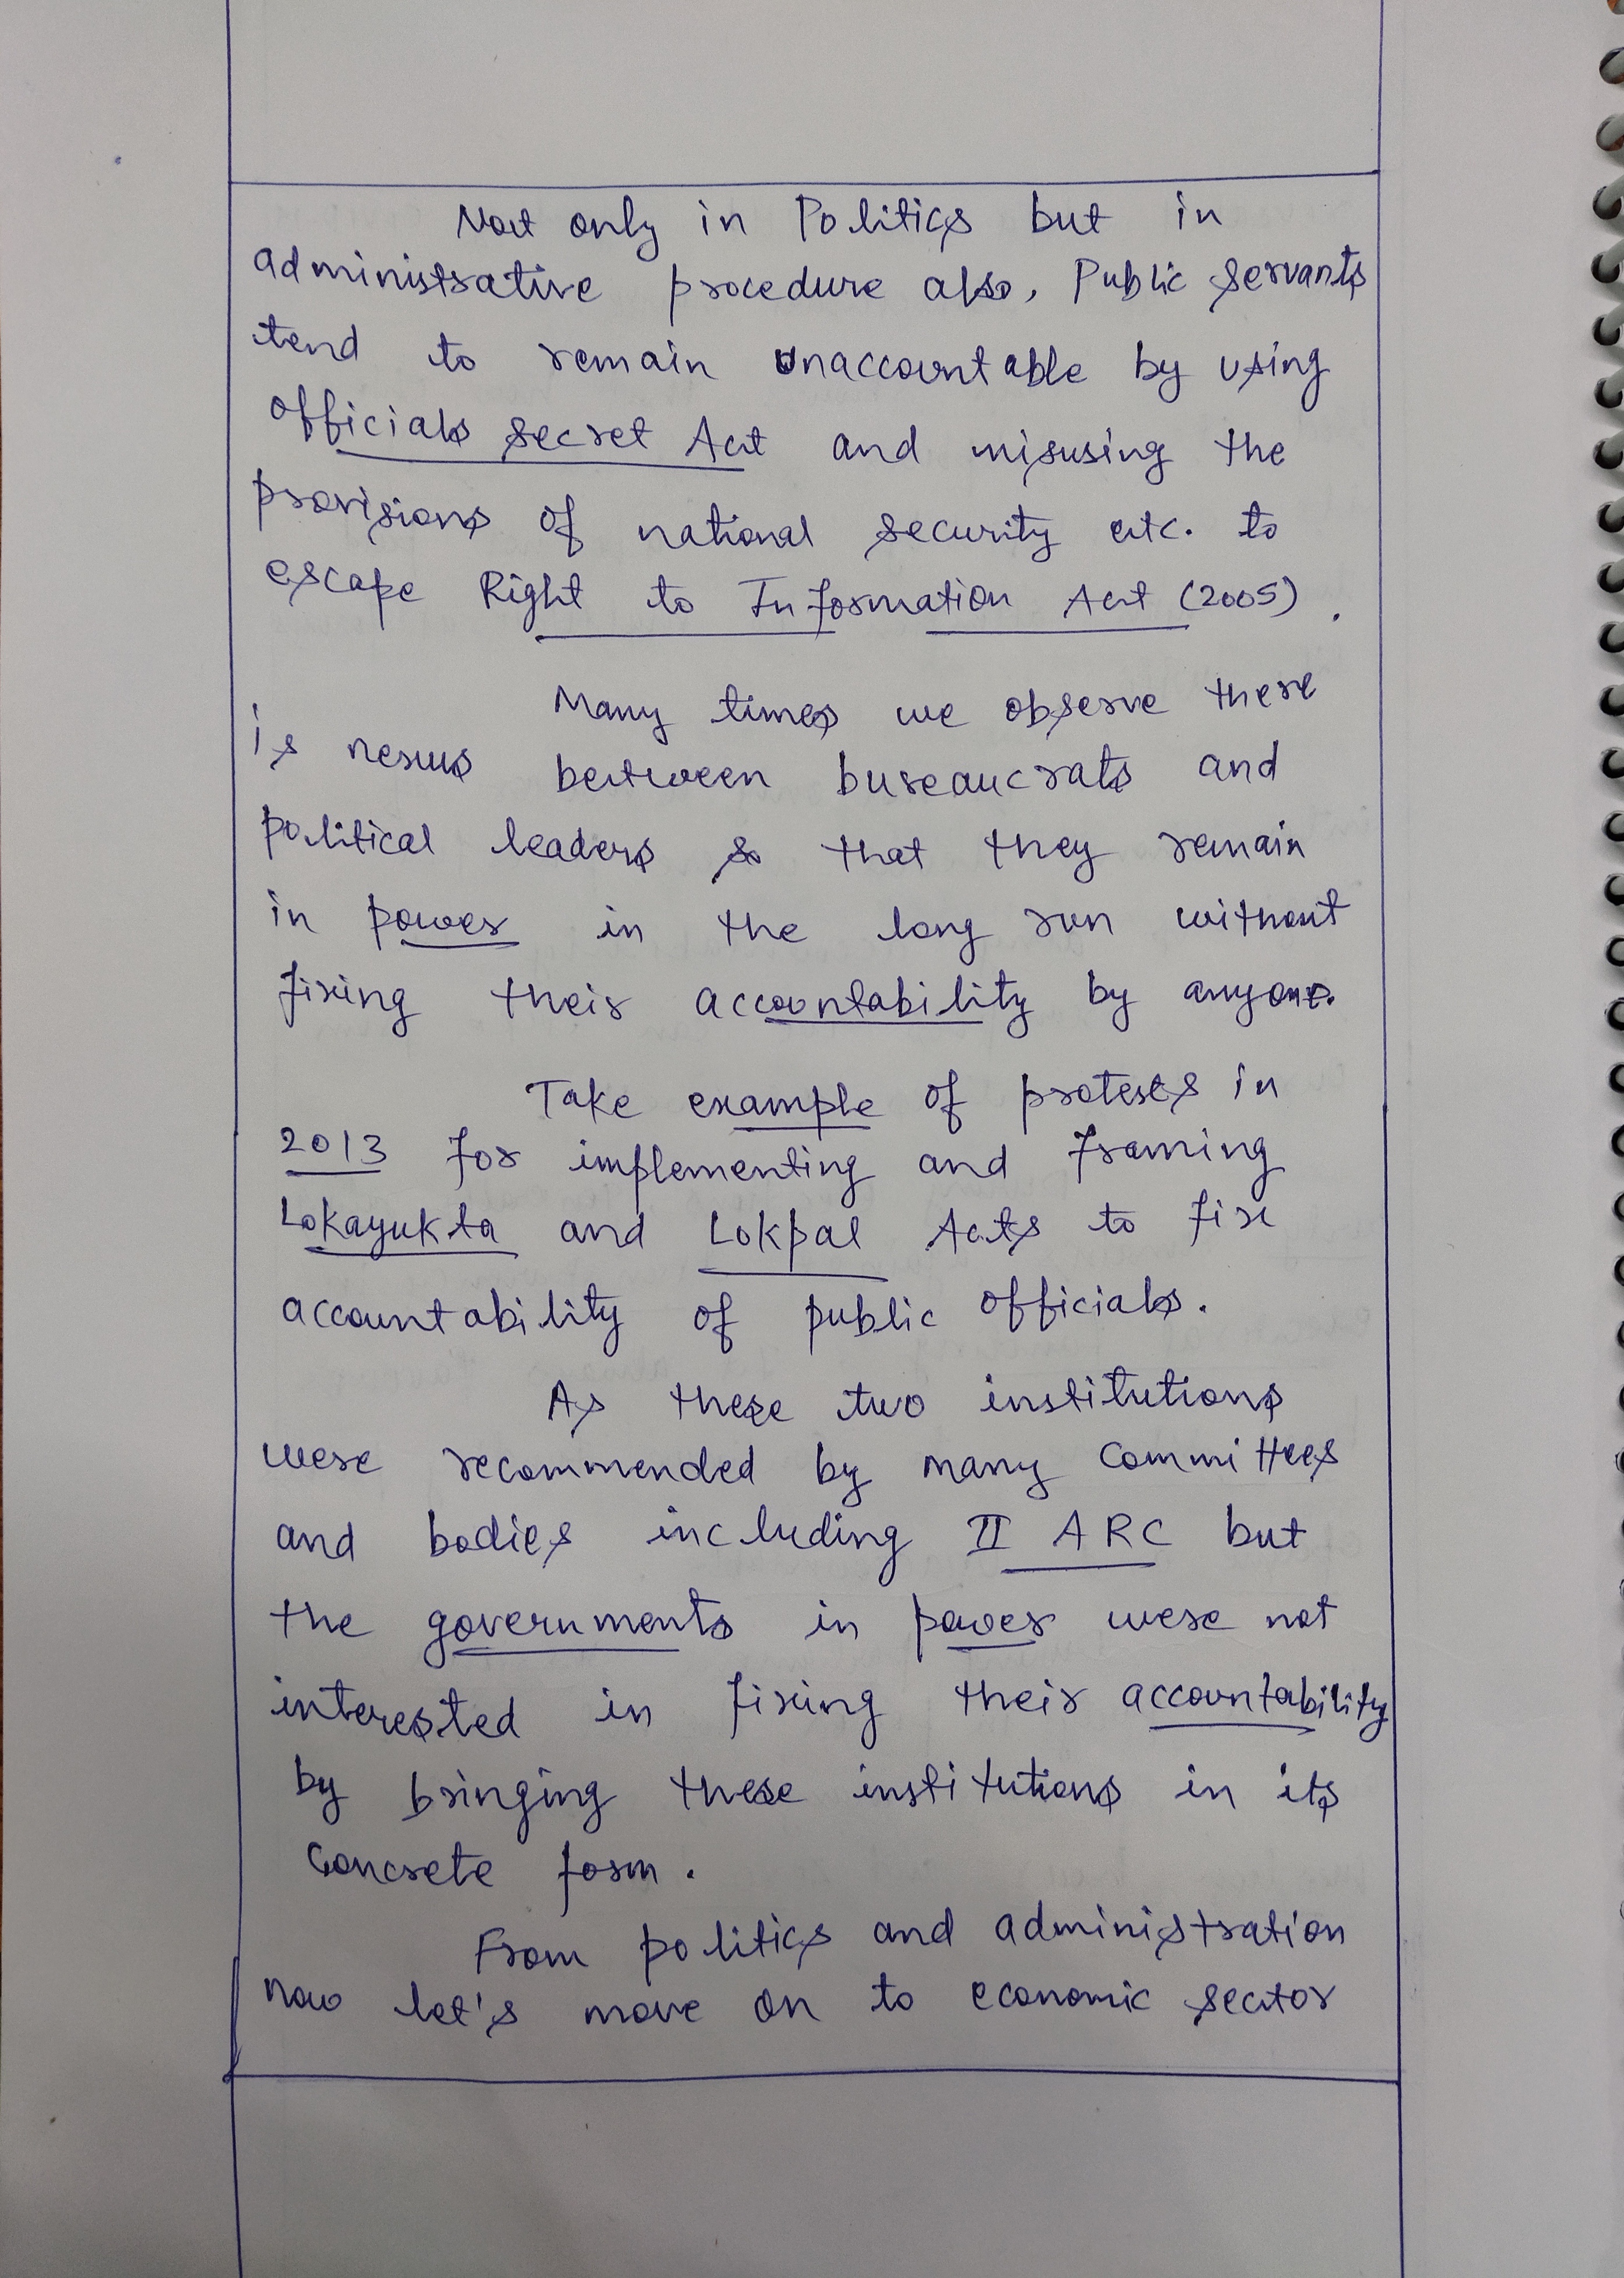 Not only in Politics but in
administrative procedure also, Public servants
tend to remain unaccountable by using
officials secret Act and misusing the
provisions of national security etc. to
escape Right to Information Act (2005).
Many times we observe there
is nexus between bureaucrats and
political leaders so that they remain
in power in the long run without
fixing their accountability by anyone.
Take example of protests in
2013 for implementing and framing
Lokayukta and Lokpal Acts to fix
accountability of public officials.
As these two institutions
were recommended by many committees
and bodies including II ARC but
the governments in power were not
interested in fixing their accountability
by bringing these institutions in its
concrete form.
From politics and administration
now let's move on to economic sector